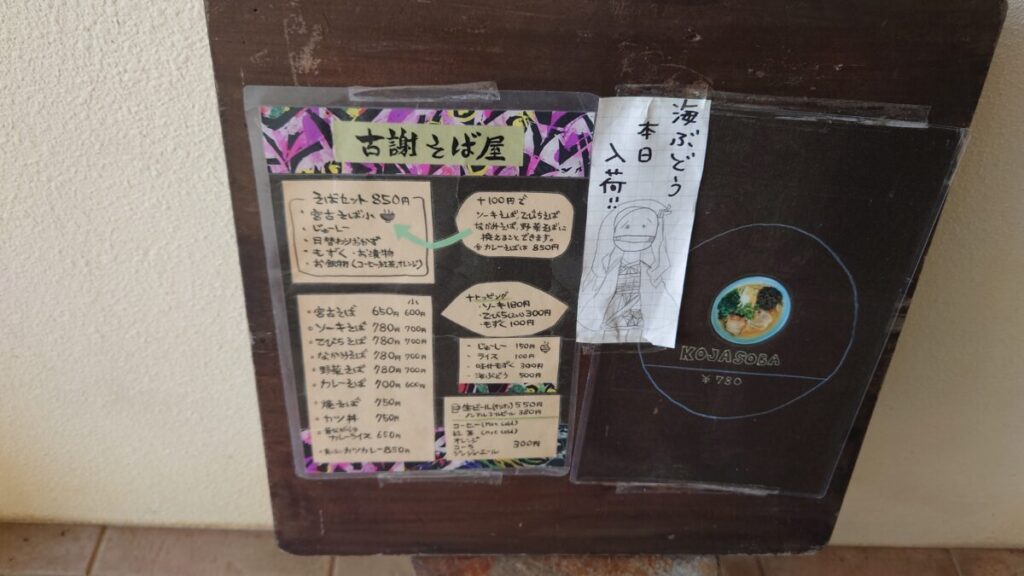 古謝そば屋
そばセット 850円
・宮古そば小
・じゅーしー
・日替わりおかず
・もずく・お漬物
・お飲物(コーヒー,紅茶,オレンジ)
+100円で
ソーキそば、てびちそば
なかみそば、野菜そばに
換えることできます。
カレーそばは 850円
小
・宮古そば 650円 600円
・ソーキそば 780円 700円
・てびちそば 780円 700円
・なかみそば 780円 700円
・野菜そば 780円 700円
・カレーそば 700円 600円
・焼そば 750円
・カツ丼 750円
カレーライス 650円
カツカレー 850円
+トッピング
・ソーキ 180円
・てびち 300円
・もずく 100円
・じゅーしー 150円
・ライス 100円
・味付もずく 300円
・海ぶどう 500円
生ビール 550円
ノンアルコールビール 380円
コーヒー (Hot cold)
紅茶 (Hot cold)
オレンジ
コーラ
ジンジャエール
300円
海ぶどう
本日
入荷!!
KOJASOBA
¥780